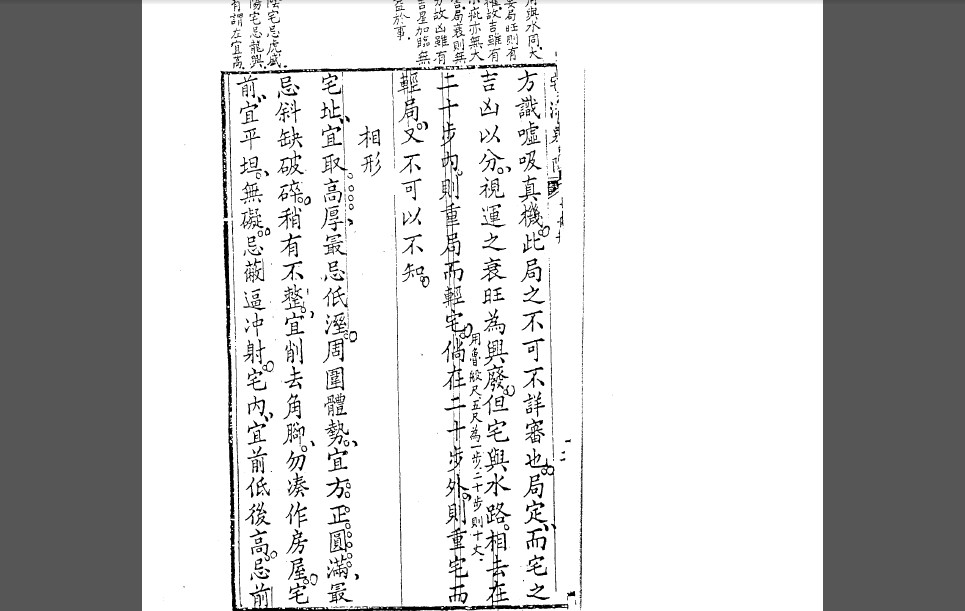 與水同大
局旺則有
故吉雖有
疵亦無大
局衰則無
故凶雖有
吉星加臨無
益於事
陰宅忌虎盛
陽宅忌龍興
有謂左宜高
十二
方識噓吸真機此局之不可不詳審也局定而宅之
吉凶以分視運之衰旺為興廢但宅與水路相去在
用魯般尺五尺為一步二十步則十丈
二十步內則重局而輕宅倘在二十步外則重宅而
輕局又不可以不知
相形
宅址宜取高厚最忌低溼周圍體勢宜方正圓滿最
忌斜缺破碎稍有不整宜削去角腳勿凑作房屋宅
前宜平坦無礙忌蔽逼冲射宅內宜前低後高忌前